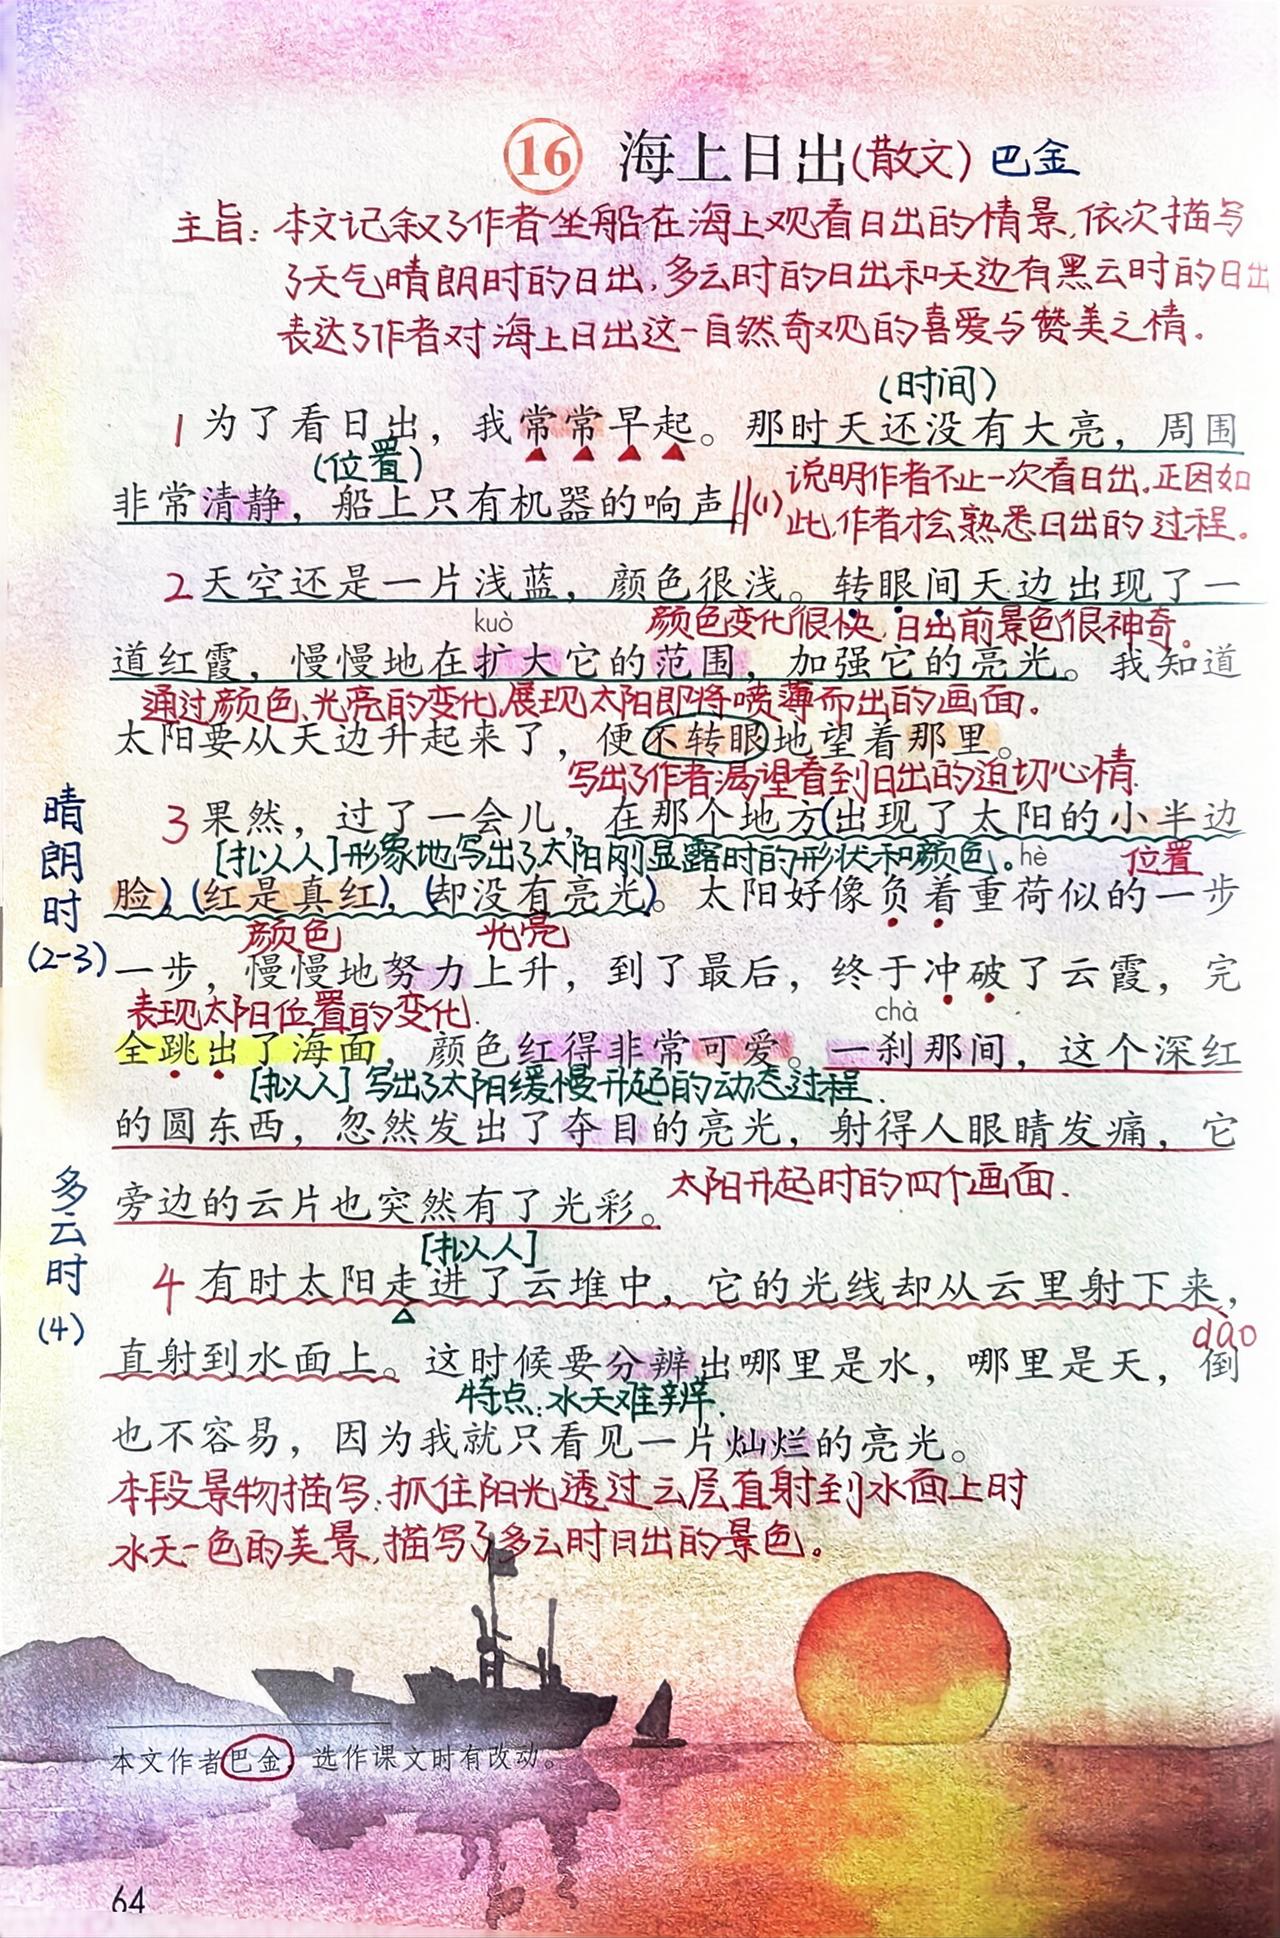 16 海上日出(散文) 巴金
主旨:本文记叙了作者坐船在海上观看日出的情景,依次描写
了天气晴朗时的日出,多云时的日出和天边有黑云时的日出
表达了作者对海上日出这一自然奇观的喜爱与赞美之情。
(时间)
1 为了看日出，我常常早起。那时天还没有大亮，周围
(位置)
说明作者不止一次看日出,正因如
非常清静，船上只有机器的响声。(1)
此,作者才会熟悉日出的过程。
2 天空还是一片浅蓝，颜色很浅。转眼间天边出现了一
kuò
颜色变化很快,日出前景色很神奇。
道红霞，慢慢地在扩大它的范围，加强它的亮光。我知道
通过颜色、光亮的变化,展现太阳即将喷薄而出的画面。
太阳要从天边升起来了，便不转眼地望着那里。
写出了作者渴望看到日出的迫切心情.
晴朗时
(2-3)
3 果然，过了一会儿，在那个地方(出现了太阳的小半边
[拟人]形象地写出了太阳刚显露时的形状和颜色。
hè
位置
脸)，(红是真红)，(却没有亮光)。太阳好像负着重荷似的一步
颜色 光亮
一步，慢慢地努力上升，到了最后，终于冲破了云霞，完
表现太阳位置的变化.
chà
全跳出了海面，颜色红得非常可爱。一刹那间，这个深红
[拟人]写出了太阳缓慢升起的动态过程.
的圆东西，忽然发出了夺目的亮光，射得人眼睛发痛，它
太阳升起时的四个画面.
旁边的云片也突然有了光彩。
多云时
(4)
[拟人]
4 有时太阳走进了云堆中，它的光线却从云里射下来，
dào
直射到水面上。这时候要分辨出哪里是水，哪里是天，倒
特点:水天难辨.
也不容易，因为我就只看见一片灿烂的亮光。
本段景物描写:抓住阳光透过云层直射到水面上时
水天一色的美景,描写了多云时日出的景色。
本文作者巴金，选作课文时有改动。
64